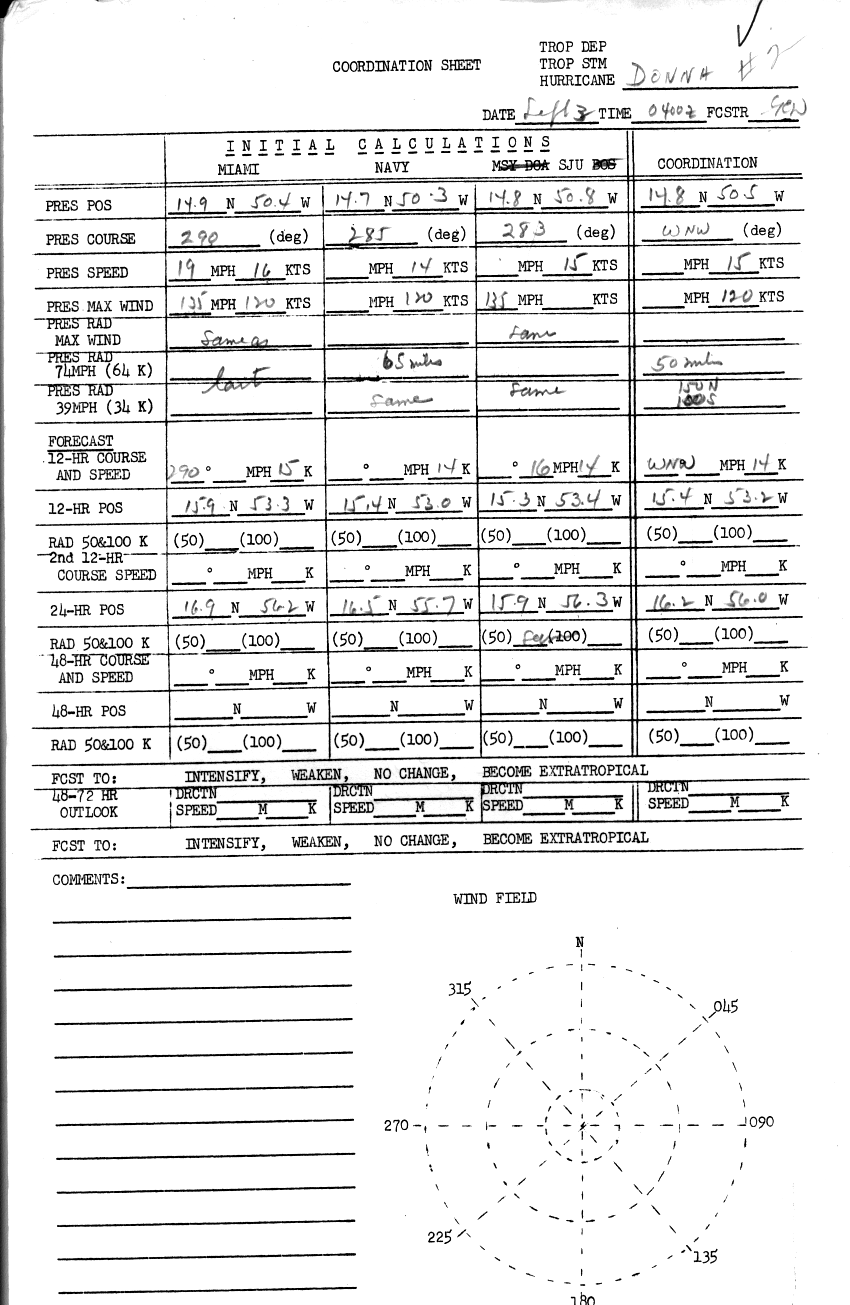 TROP DEP
COORDINATION SHEET TROP STM
HURRICANE DONNA #2
DATE Sept 3 TIME 0400z FCSTR GEW
INITIAL CALCULATIONS
MIAMI NAVY MSY BOA SJU BOS COORDINATION
PRES POS 14.9 N 50.4 W 14.7 N 50.3 W 14.8 N 50.8 W 14.8 N 50.5 W
PRES COURSE 290 (deg) 285 (deg) 283 (deg) WNW (deg)
PRES SPEED 19 MPH 16 KTS MPH 14 KTS MPH 15 KTS MPH 15 KTS
PRES MAX WIND 135 MPH 120 KTS MPH 120 KTS 135 MPH KTS MPH 120 KTS
PRES RAD
MAX WIND Same as Same
PRES RAD
74MPH (64 K) last 65 miles 50 miles
PRES RAD
39MPH (34 K) Same Same 150 N
100 S
FORECAST
12-HR COURSE
AND SPEED 290 ° MPH 15 K ° MPH 14 K ° 16 MPH 14 K WNW MPH 14 K
12-HR POS 15.9 N 53.3 W 15.4 N 53.0 W 15.3 N 53.4 W 15.4 N 53.2 W
RAD 50&100 K (50) (100) (50) (100) (50) (100) (50) (100)
2nd 12-HR
COURSE SPEED ° MPH K ° MPH K ° MPH K ° MPH K
24-HR POS 16.9 N 56.2 W 16.5 N 55.7 W 15.9 N 56.3 W 16.2 N 56.0 W
RAD 50&100 K (50) (100) (50) (100) (50) (100) (50) (100)
48-HR COURSE
AND SPEED ° MPH K ° MPH K ° MPH K ° MPH K
48-HR POS N W N W N W N W
RAD 50&100 K (50) (100) (50) (100) (50) (100) (50) (100)
FCST TO: INTENSIFY, WEAKEN, NO CHANGE, BECOME EXTRATROPICAL
48-72 HR DRCTN DRCTN DRCTN DRCTN
OUTLOOK SPEED M K SPEED M K SPEED M K SPEED M K
FCST TO: INTENSIFY, WEAKEN, NO CHANGE, BECOME EXTRATROPICAL
COMMENTS:
WIND FIELD
N
315 045
270 090
225 135
180